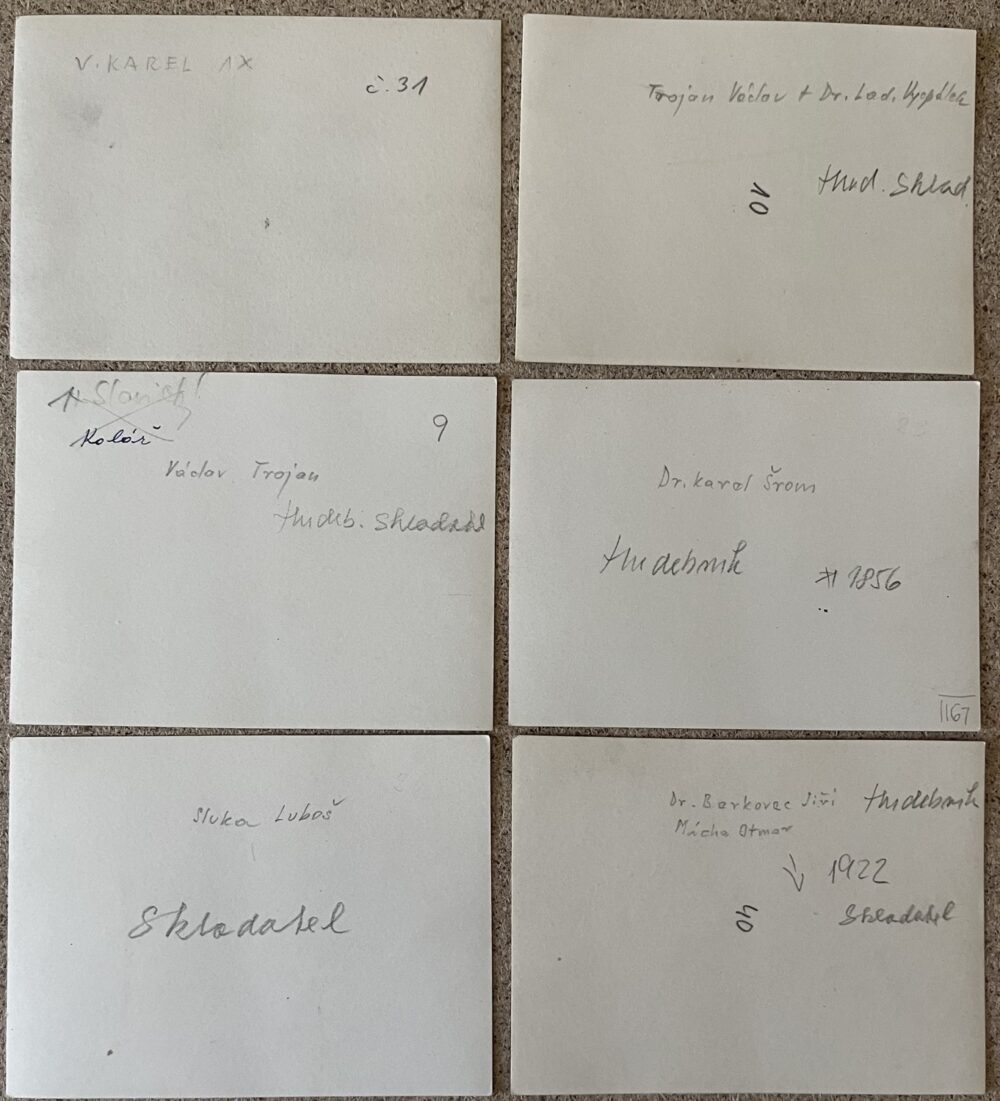 V. KAREL 1X
č. 31
Trojan Václav + Dr. Lad. Vycpálek
Hud. Sklad.
10
Kolář
9
Václav Trojan
Hudeb. Skladatel
23
Dr. Karel Šrom
Hudebník
* 1856
1167
Sluka Luboš
Skladatel
Dr. Berkovec Jiří Hudebník
Mácha Otmar
1922
40
Skladatel